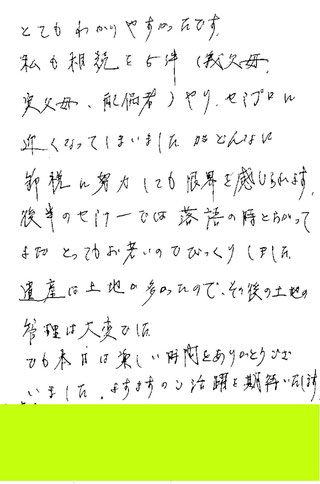 とてもわかりやすかったです。
私も相続を5件(義父母、
実父母、配偶者)やり、セミプロに
近くなってしまいました が、どんなに
節税に努力しても限界を感じられます。
後半のセミナーでは落語の時とちがって
まだ とってもお若いのでびっくりしました。
遺産は土地が多かったので、その後の土地の
管理は大変でした
でも本日は楽しい時間をありがとうござ
いました。ますますのご活躍を期待いたします